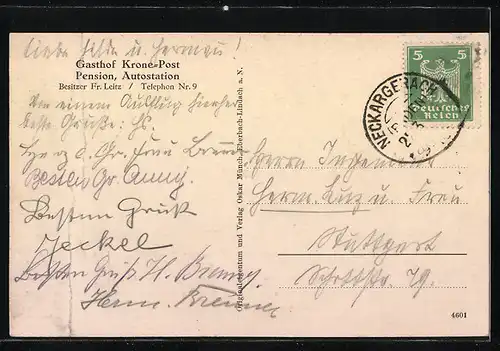 Liebe Hilde u. Hermann!
Gasthof Krone-Post
Pension, Autostation
Besitzer Fr. Leitz / Telephon Nr. 9
Von einem Ausflug hierher
beste Grüße:
Herzl. Gr. Frau
Besten Gr. Anny.
Besten Gruß
Jeckel
Besten Gruß H.
Herm.
Originalzentrum und Verlag Oskar Münch, Eberbach-Lindach a. N.
5 5
Deutsches
Reich
NECKARGERACH
Herrn Ingenieur
Herm. Lutz u. Frau
Stuttgart
Schottstr. 79.
4601